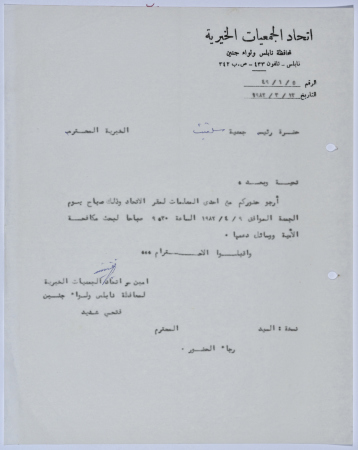 اتحاد الجمعيات الخيرية
محافظة نابلس ولواء جنين
نابلس - تلفون ٤٣٣ - ص.ب ٢٤٢
الرقم
التاريخ ١٩٨٢ / ٣ /
حضرة رئيس جمعية الخيرية المحترم
تحية وبعد ،
أرجو حضوركم مع احدى المعلمات لمقر الاتحاد وذلك صباح يوم
الجمعة الموافق ١٩٨٢/٤/٩ الساعة ٩،٣٠ صباحا لبحث مكافحة
الأمية ووسائل دعمها ٠
واقبلوا الاحترام ،،،
امين سر اتحاد الجمعيات الخيرية
لمحافظة نابلس ولواء جنين
نسخة : السيد المحترم
رجاء الحضور ٠